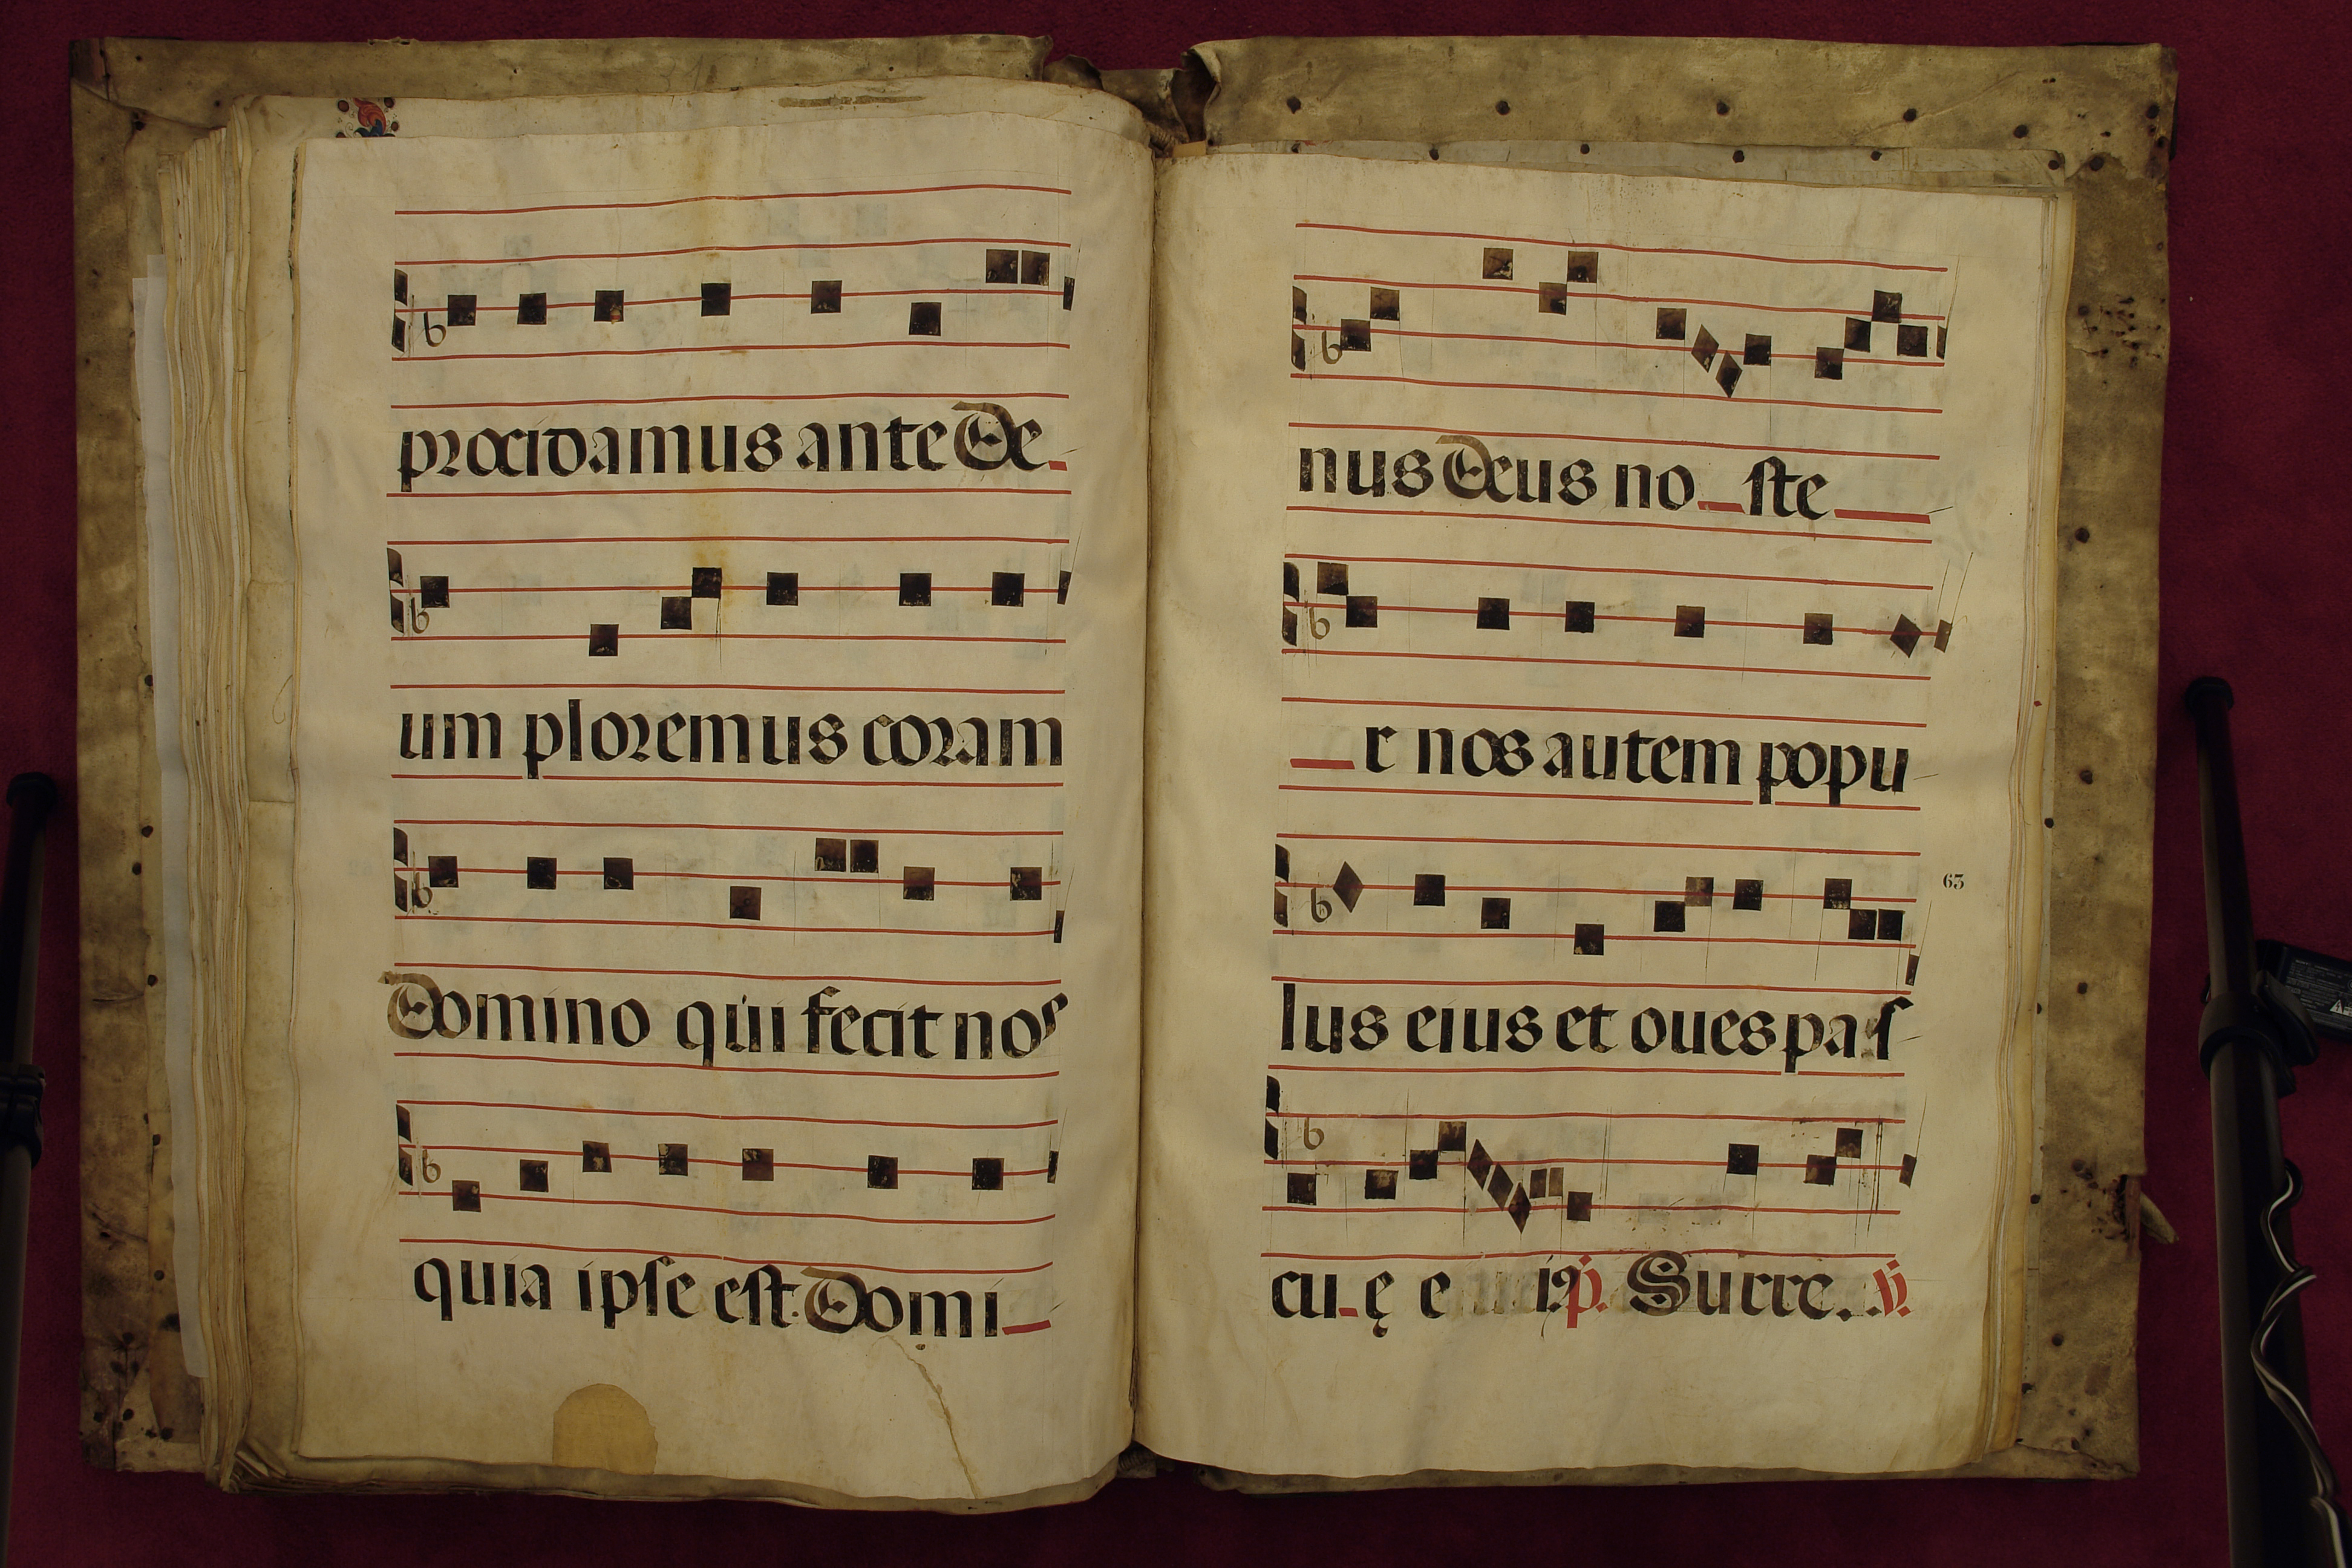 procidamus ante De
um ploremus coram
Domino qui fecit nos
quia ipse est Domi
nus Deus no ste
r nos autem popu
63
lus eius et oues pas
cu ę e i9 p. Surre. ℣.